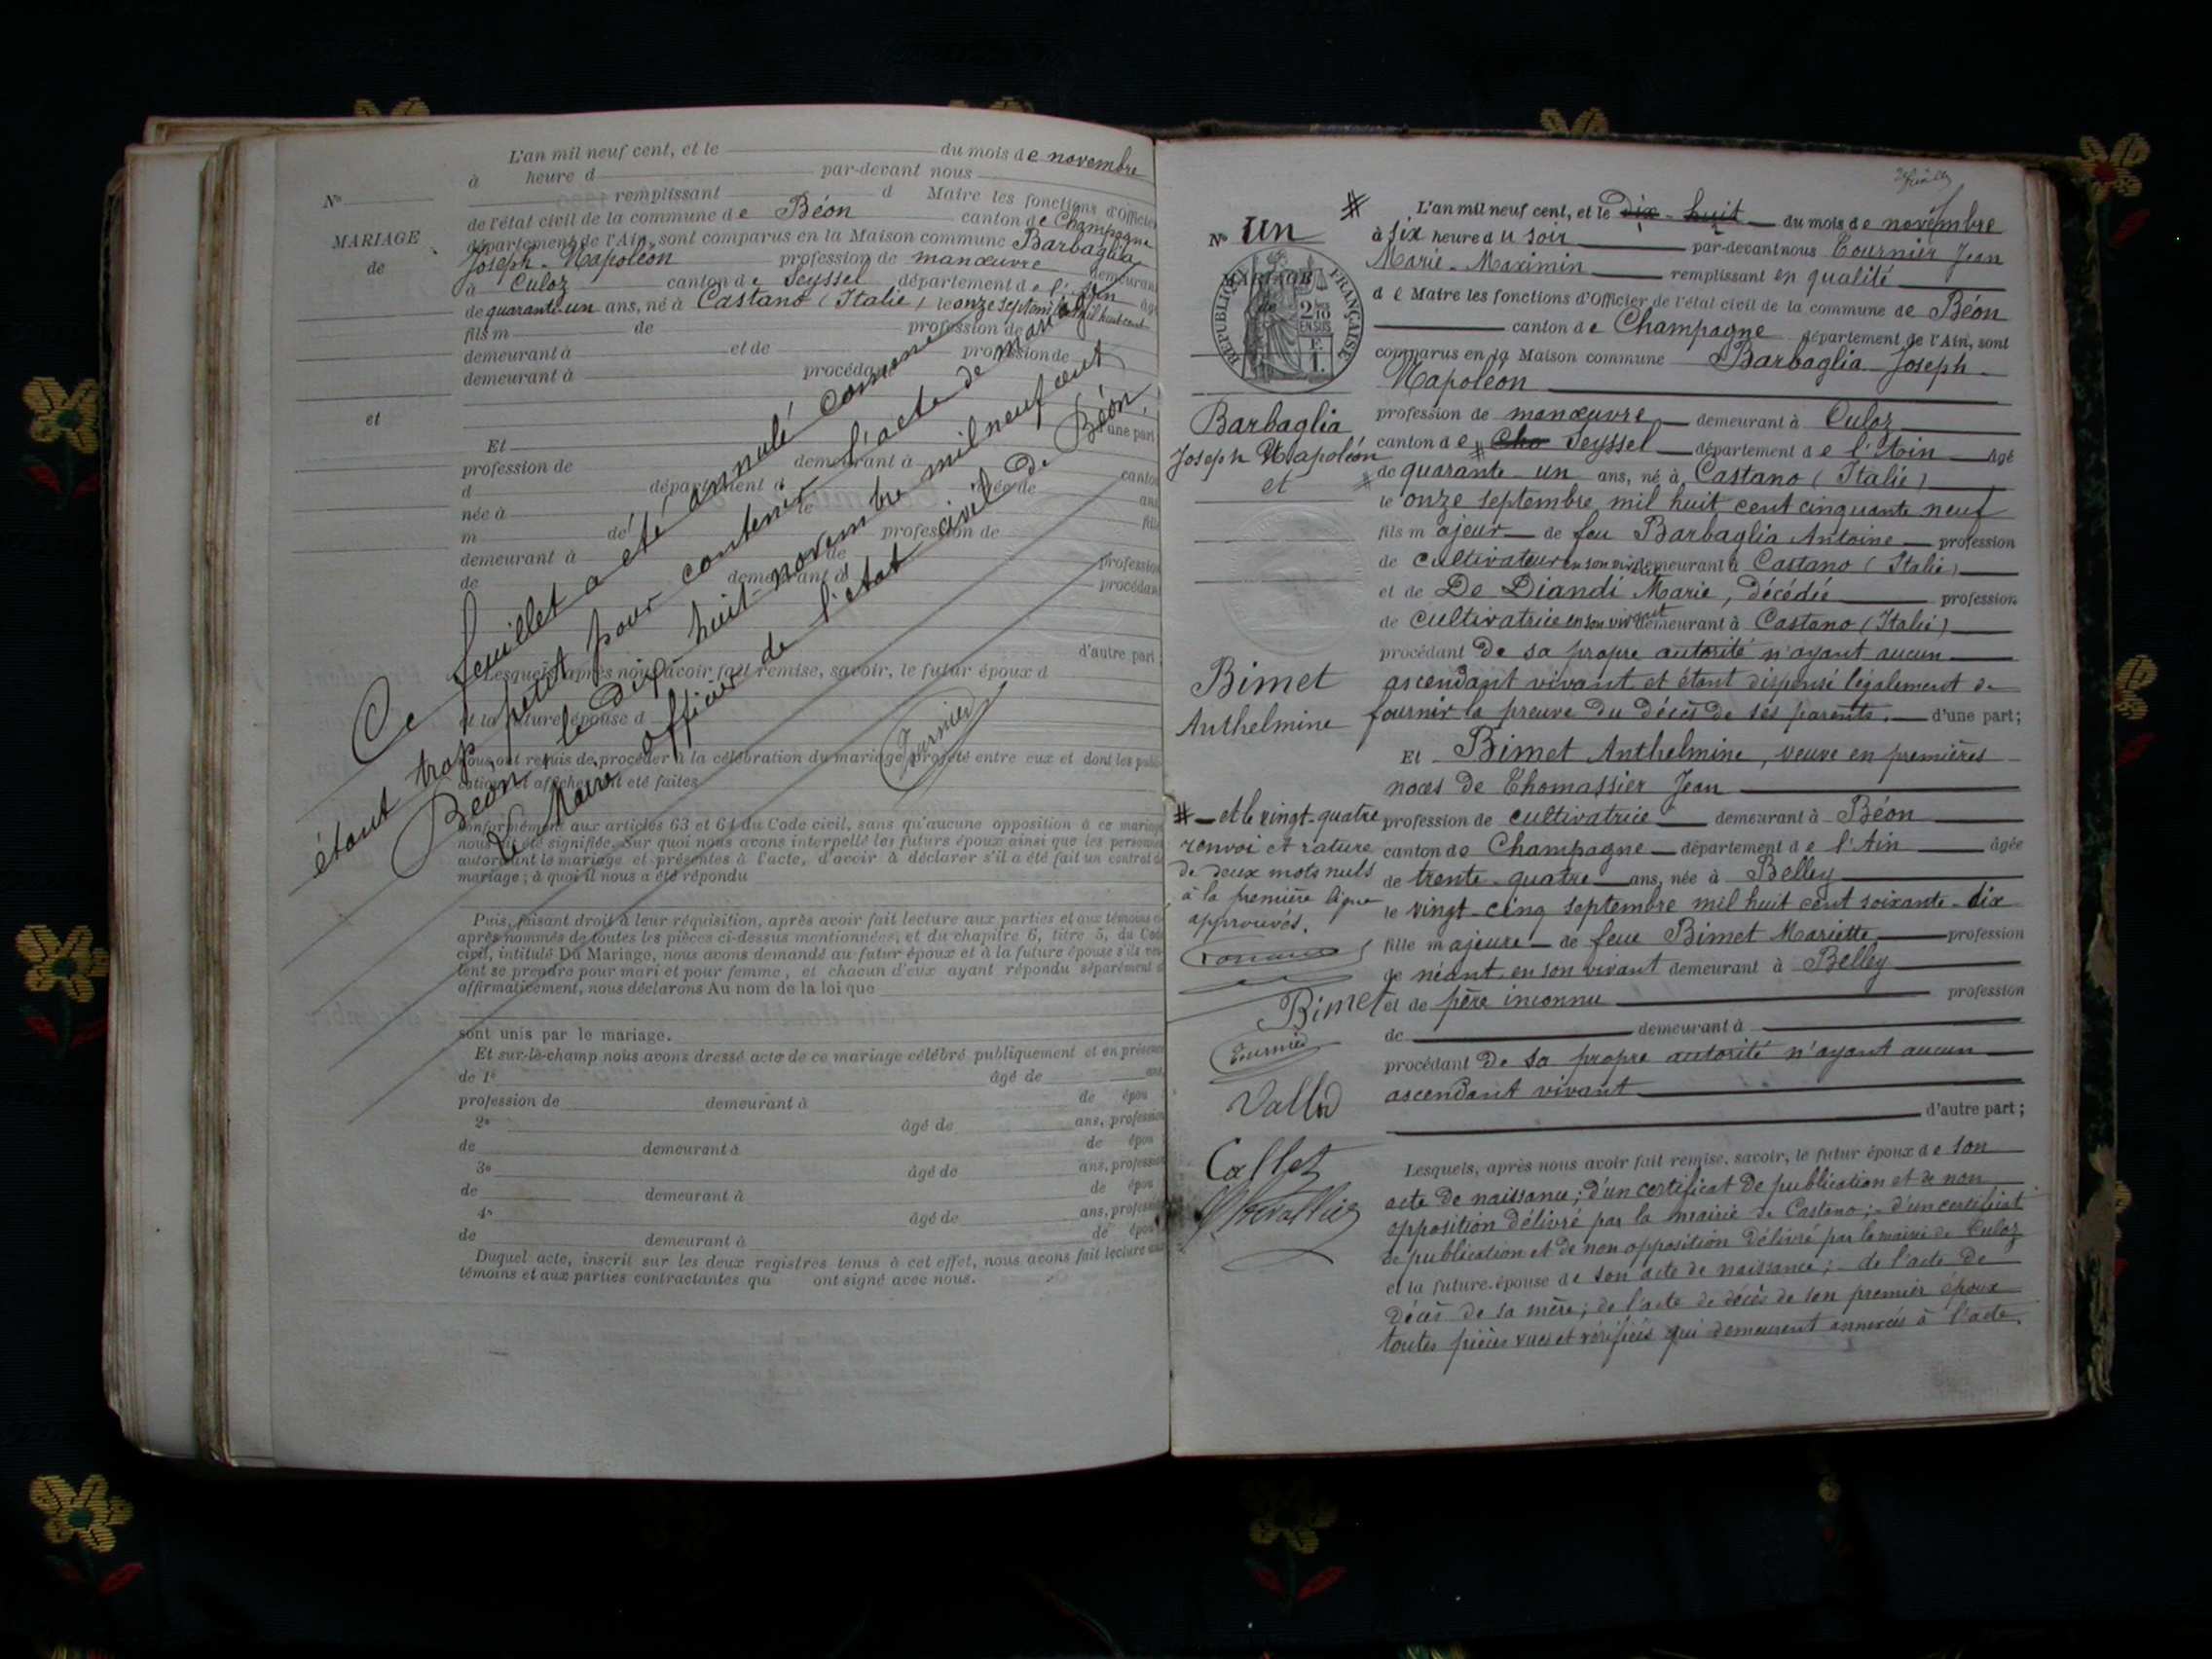 L'an mil neuf cent, et le du mois de novembre
à heure d par-devant nous
remplissant d Maire les fonctions d'Officier
de l'état civil de la commune de Béon canton de Champagne
département de l'Ain, sont comparus en la Maison commune Barbaglia
Joseph-Napoléon profession de manœuvre demeurant
à Culoz canton de Seyssel département de l'Ain âgé
de quarante-un ans, né à Castano (Italie) le onze septembre mil huit cent
fils m de profession de
demeurant à et de profession de
demeurant à procédant
d'une part
Et
profession de demeurant à canton
d département d âgée de ans
née à le fille
m de profession de
demeurant à et de profession
de demeurant à procédant
d'autre part
Lesquels, après nous avoir fait remise, savoir, le futur époux d
et la future épouse d
nous ont requis de procéder à la célébration du mariage projeté entre eux et dont les publi-
cations et affiches ont été faites
conformément aux articles 63 et 64 du Code civil, sans qu'aucune opposition à ce mariage
nous ait été signifiée. Sur quoi nous avons interpellé les futurs époux ainsi que les personnes
autorisant le mariage et présentes à l'acte, d'avoir à déclarer s'il a été fait un contrat de
mariage ; à quoi il nous a été répondu
Puis, faisant droit à leur réquisition, après avoir fait lecture aux parties et aux témoins ci-
après nommés de toutes les pièces ci-dessus mentionnées, et du chapitre 6, titre 5, du Code
civil, intitulé Du Mariage, nous avons demandé au futur époux et à la future épouse s'ils veu-
lent se prendre pour mari et pour femme, et chacun d'eux ayant répondu séparément et
affirmativement, nous déclarons Au nom de la loi que
sont unis par le mariage.
Et sur-le-champ nous avons dressé acte de ce mariage célébré publiquement et en présence
de 1° âgé de ans
profession de demeurant à de épou
2° âgé de ans, profession
de demeurant à de épou
3° âgé de ans, profession
de demeurant à de épou
4° âgé de ans, profession
de demeurant à de épou
Duquel acte, inscrit sur les deux registres tenus à cet effet, nous avons fait lecture aux
témoins et aux parties contractantes qui ont signé avec nous.
N°
MARIAGE
de
et
Ce feuillet a été annulé comme
étant trop petit pour contenir l'acte de mariage
Béon, le dix-huit novembre mil neuf cent
Le Maire officier de l'état civil de Béon,
Tournier
# L'an mil neuf cent, et le dix-huit du mois de novembre
à six heure du soir par-devant nous Tournier Jean
Marie-Maximin remplissant en qualité
de Maire les fonctions d'Officier de l'état civil de la commune de Béon
canton de Champagne département de l'Ain, sont
comparus en la Maison commune Barbaglia Joseph-
Napoléon
profession de manœuvre demeurant à Culoz
canton de Cha Seyssel département de l'Ain âgé
de quarante-un ans, né à Castano (Italie)
le onze septembre mil huit cent cinquante neuf
fils majeur de feu Barbaglia Antoine profession
de cultivateur en son vivant demeurant à Castano (Italie)
et de De Diandi Marie, décédée profession
de cultivatrice en son vivant demeurant à Castano (Italie)
procédant de sa propre autorité n'ayant aucun
ascendant vivant et étant dispensé légalement de
fournir la preuve du décès de ses parents. d'une part;
Et Bimet Anthelmine, veuve en premières
noces de Thomassier Jean
profession de cultivatrice demeurant à Béon
canton de Champagne département de l'Ain âgée
de trente-quatre ans, née à Belley
le vingt-cinq septembre mil huit cent soixante-dix
fille majeure de feue Bimet Mariette profession
de néant en son vivant demeurant à Belley
et de père inconnu profession
de demeurant à
procédant de sa propre autorité n'ayant aucun
ascendant vivant
d'autre part ;
Lesquels, après nous avoir fait remise, savoir, le futur époux de son
acte de naissance; d'un certificat de publication et de non
opposition délivré par la mairie de Castano;- d'un certificat
de publication et de non opposition délivré par le maire de Culoz
et la future épouse de son acte de naissance;- de l'acte de
décès de sa mère; de l'acte de décès de son premier époux
toutes pièces vues et vérifiées qui demeurent annexées à l'acte.
N° Un
MARIAGE
de
RÉPUBLIQUE FRANÇAISE
2/10
EN SUS
F.
1.
Barbaglia
Joseph Napoléon
et
Bimet
Anthelmine
#-et le vingt-quatre
renvoi et rature
de deux mots nuls
à la première ligne
approuvés.
Bimet
Tournier
Vallod
Callet
Chevallier